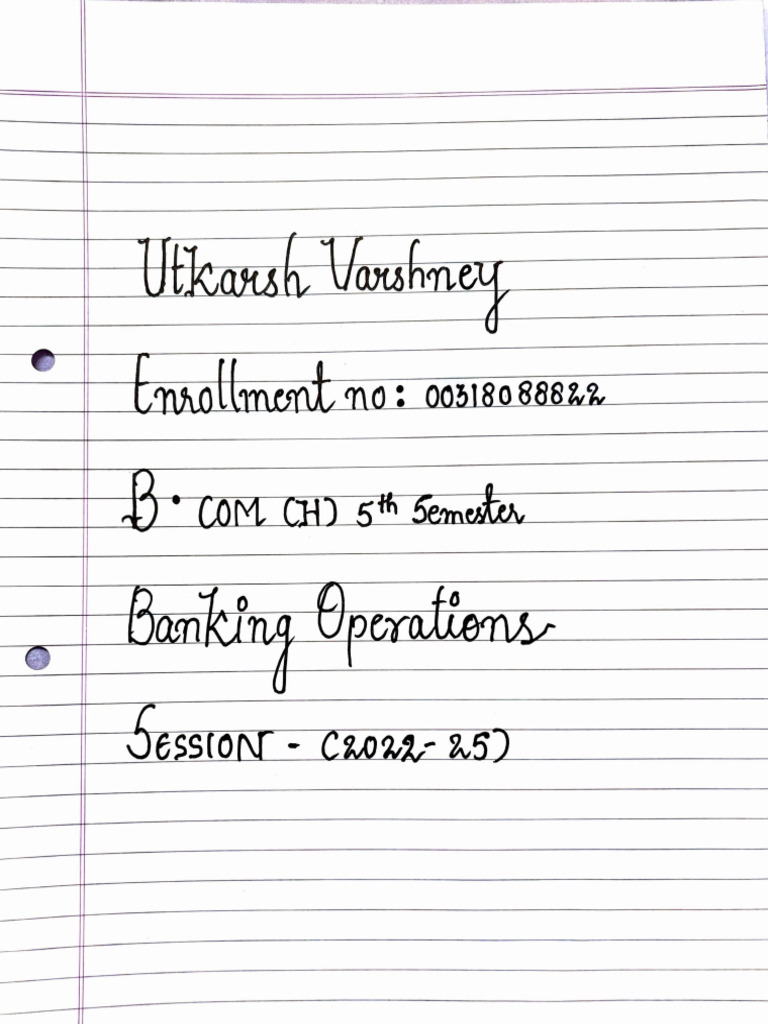 Utkarsh Varshney
Enrollment no: 00318088822
B. COM (H) 5th Semester
Banking Operations
SESSION - (2022-25)